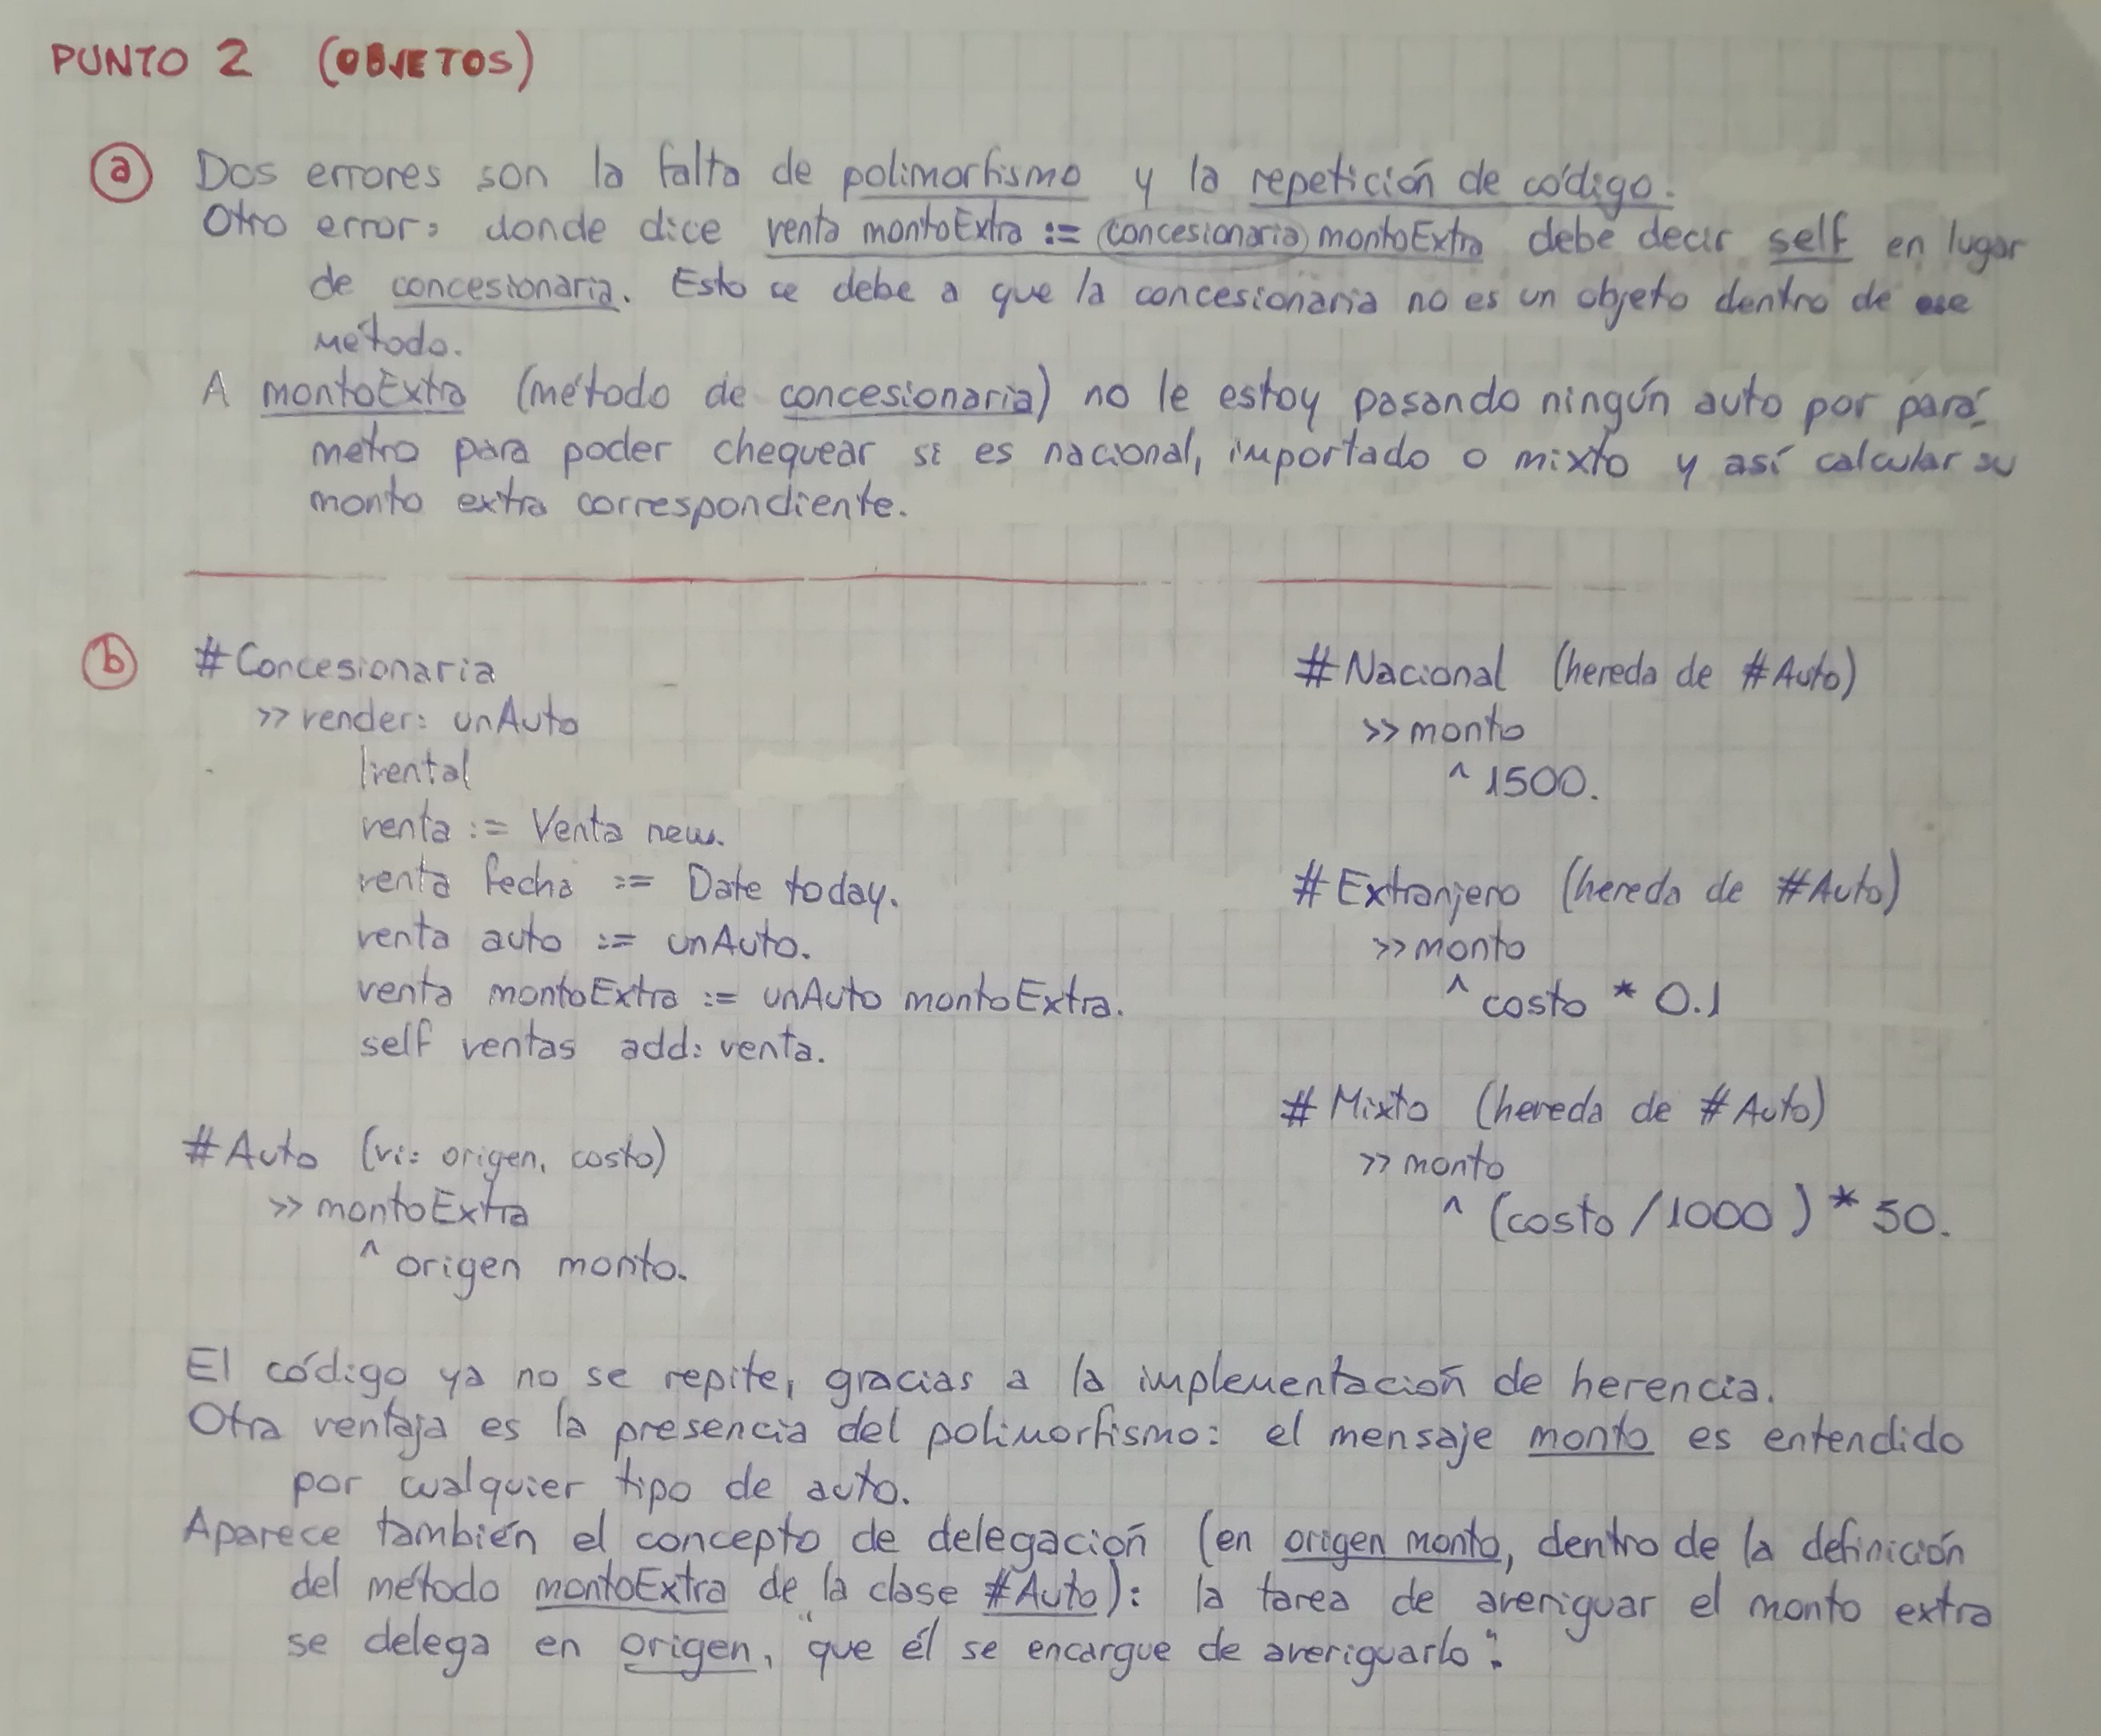 PUNTO 2 (OBJETOS)
a Dos errores son la falta de polimorfismo y la repetición de código.
Otro error: donde dice venta montoExtra := concesionaria montoExtra debe decir self en lugar
de concesionaria. Esto se debe a que la concesionaria no es un objeto dentro de ese
método.
A montoExtra (método de concesionaria) no le estoy pasando ningún auto por pará-
metro para poder chequear si es nacional, importado o mixto y así calcular su
monto extra correspondiente.
b #Concesionaria
>> vender: unAuto
|venta|
venta := Venta new.
venta fecha := Date today.
venta auto := unAuto.
venta montoExtra := unAuto montoExtra.
self ventas add: venta.
#Auto (vi: origen, costo)
>> montoExtra
^ origen monto.
#Nacional (hereda de #Auto)
>> monto
^ 1500.
#Extranjero (hereda de #Auto)
>> monto
^ costo * 0.1
#Mixto (hereda de #Auto)
>> monto
^ (costo / 1000) * 50.
El código ya no se repite, gracias a la implementación de herencia.
Otra ventaja es la presencia del polimorfismo: el mensaje monto es entendido
por cualquier tipo de auto.
Aparece también el concepto de delegación (en origen monto, dentro de la definición
del método montoExtra de la clase #Auto): la tarea de averiguar el monto extra
se delega en origen, "que él se encargue de averiguarlo".